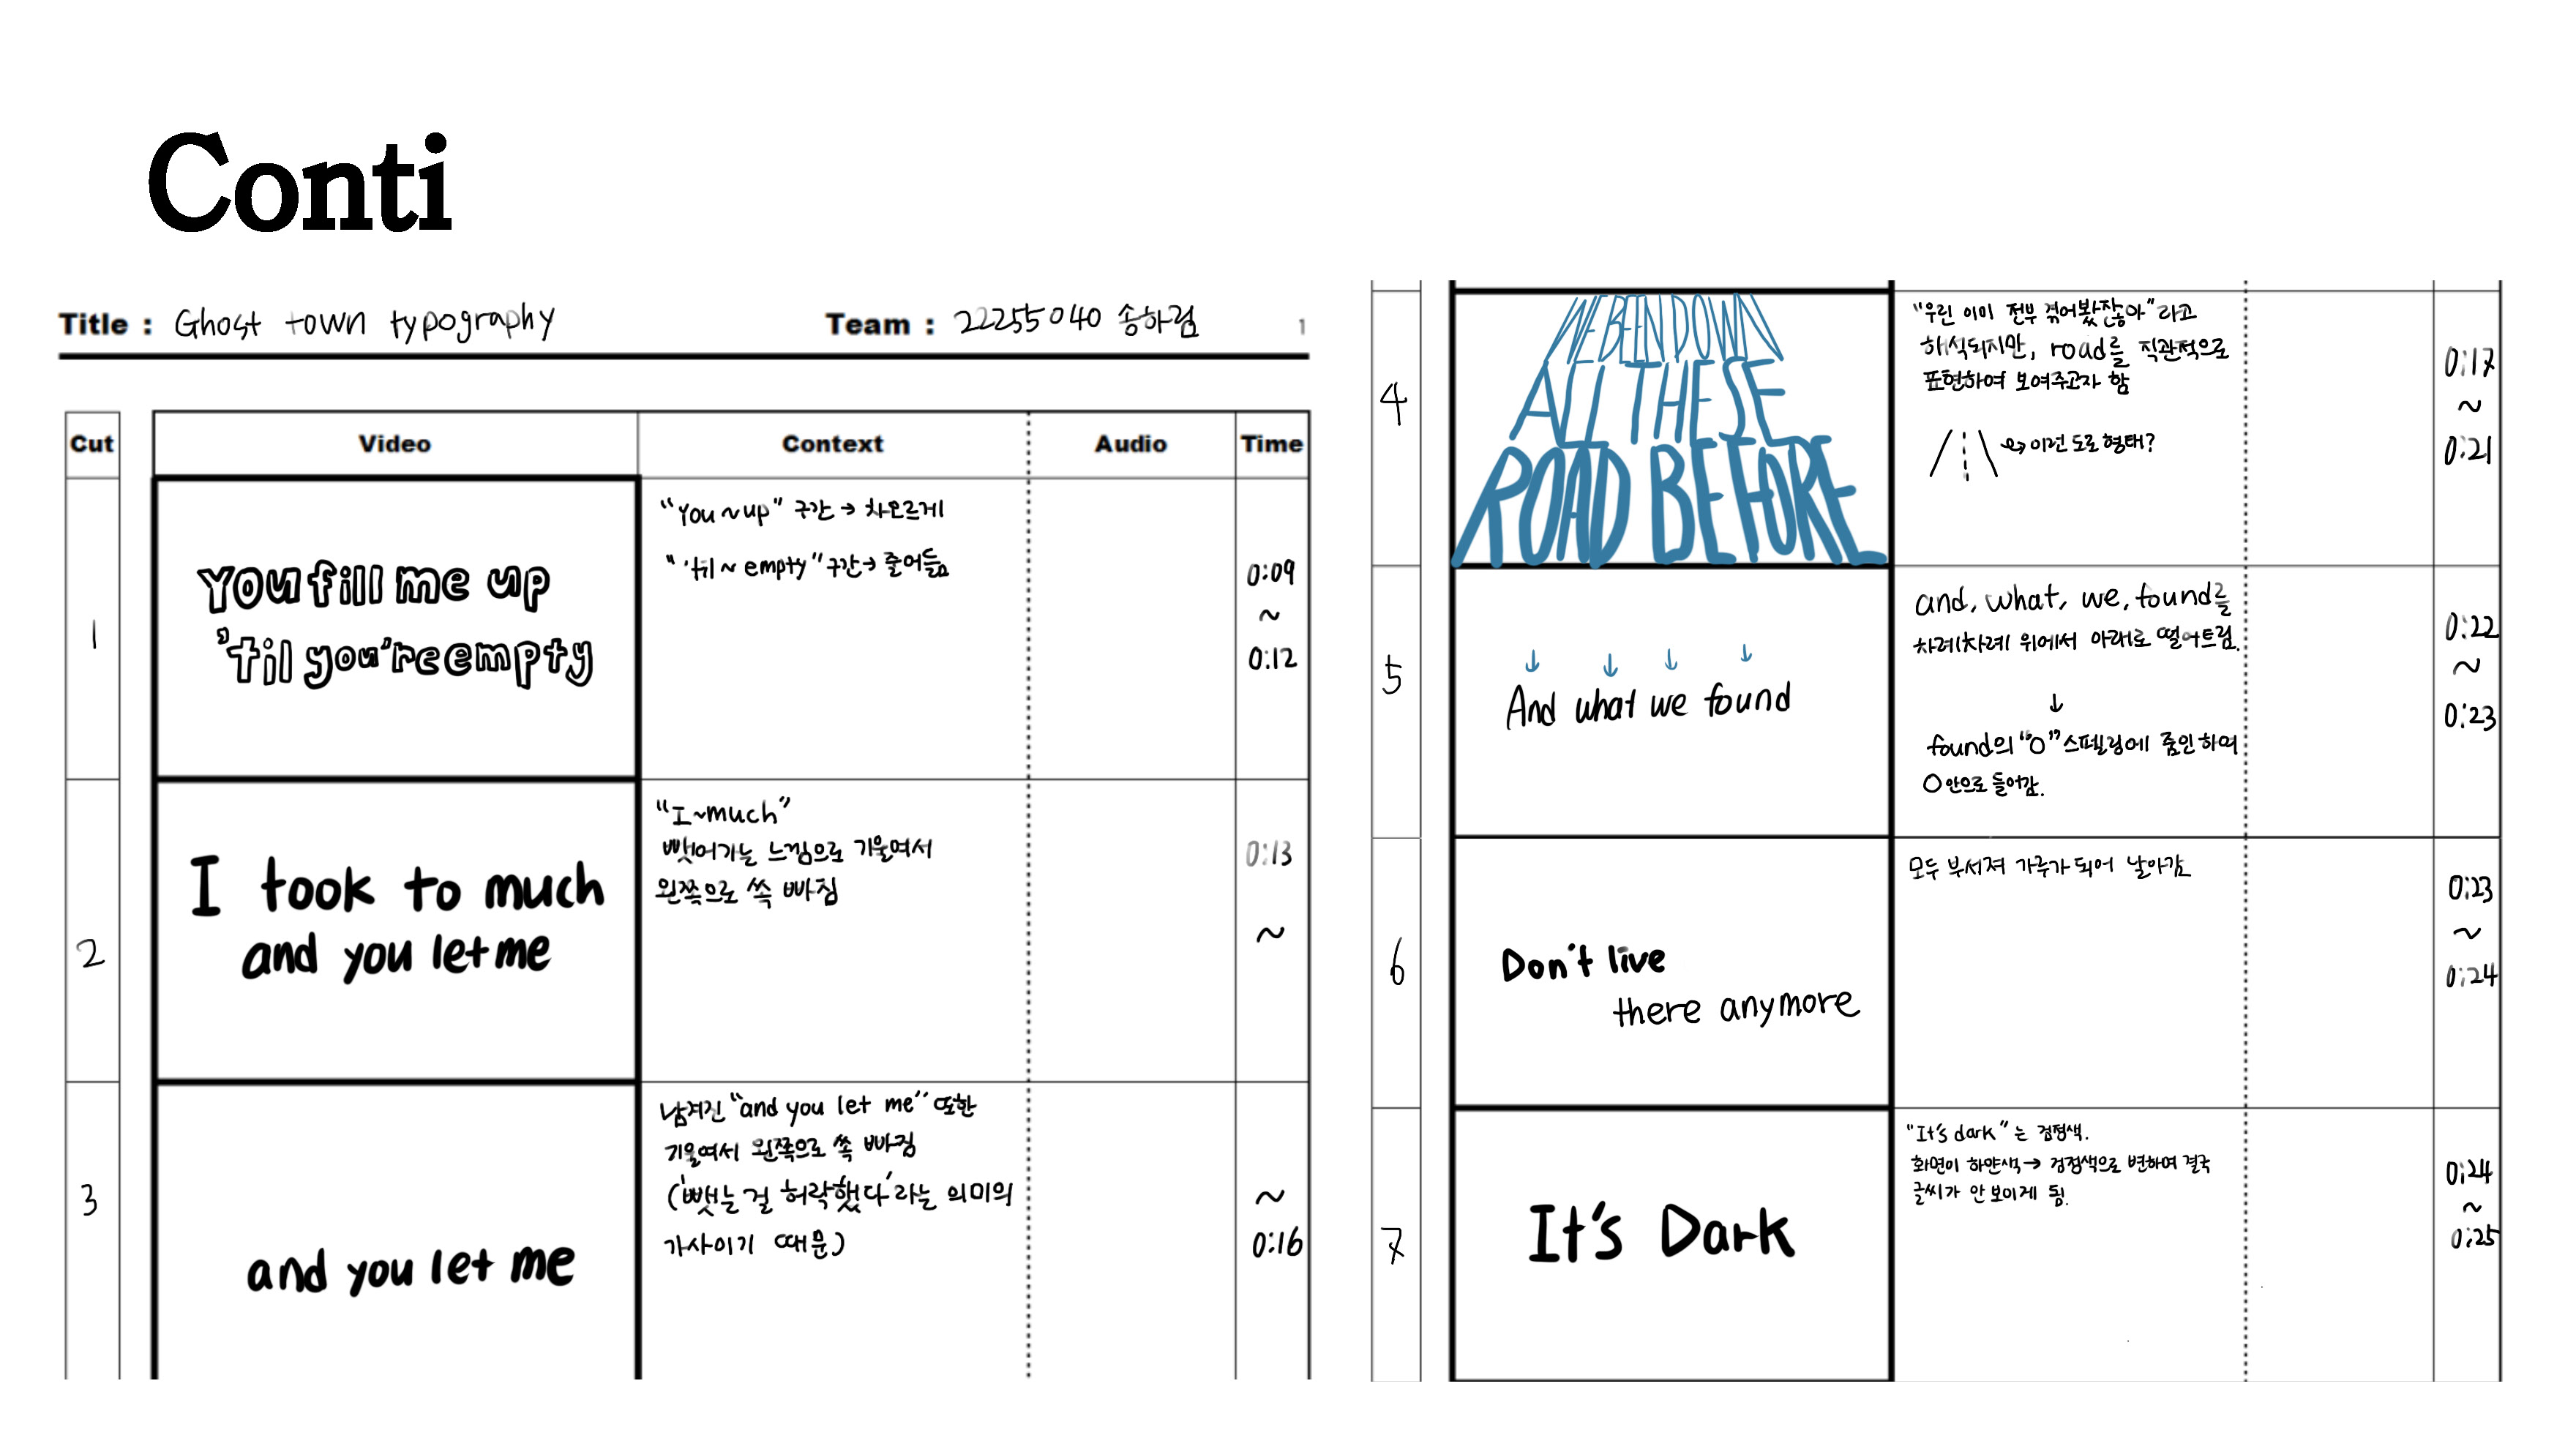 Conti
Title : Ghost town typography
Team : 22255040 송하림
1
Cut
Video
Context
Audio
Time
1
You fill me up
'til you're empty
"You ~ up" 구간 → 차오르게
" 'til ~ empty" 구간 → 줄어듦
0:09
~
0:12
2
I took to much
and you let me
"I ~ much"
뺏어가는 느낌으로 기울여서
왼쪽으로 쏙 빠짐
0:13
~
3
and you let me
남겨진 "and you let me" 또한
기울여서 왼쪽으로 쏙 빠짐
('뺏는 걸 허락했다'라는 의미의
가사이기 때문)
~
0:16
4
WE BEEN DOWN
ALL THESE
ROAD BEFORE
"우린 이미 전부 겪어봤잖아"라고
해석되지만, road를 직관적으로
표현하여 보여주고자 함
→ 이런 도로 형태?
0:17
~
0:21
5
↓ ↓ ↓ ↓
And what we found
and, what, we, found를
차례차례 위에서 아래로 떨어트림.
↓
found의 "O" 스펠링에 줌인하여
O안으로 들어감.
0:22
~
0:23
6
Don't live
there anymore
모두 부서져 가루가 되어 날아감
0:23
~
0:24
7
It's Dark
"It's dark"는 검정색.
화면이 하얀색 → 검정색으로 변하여 결국
글씨가 안 보이게 됨.
0:24
~
0:25